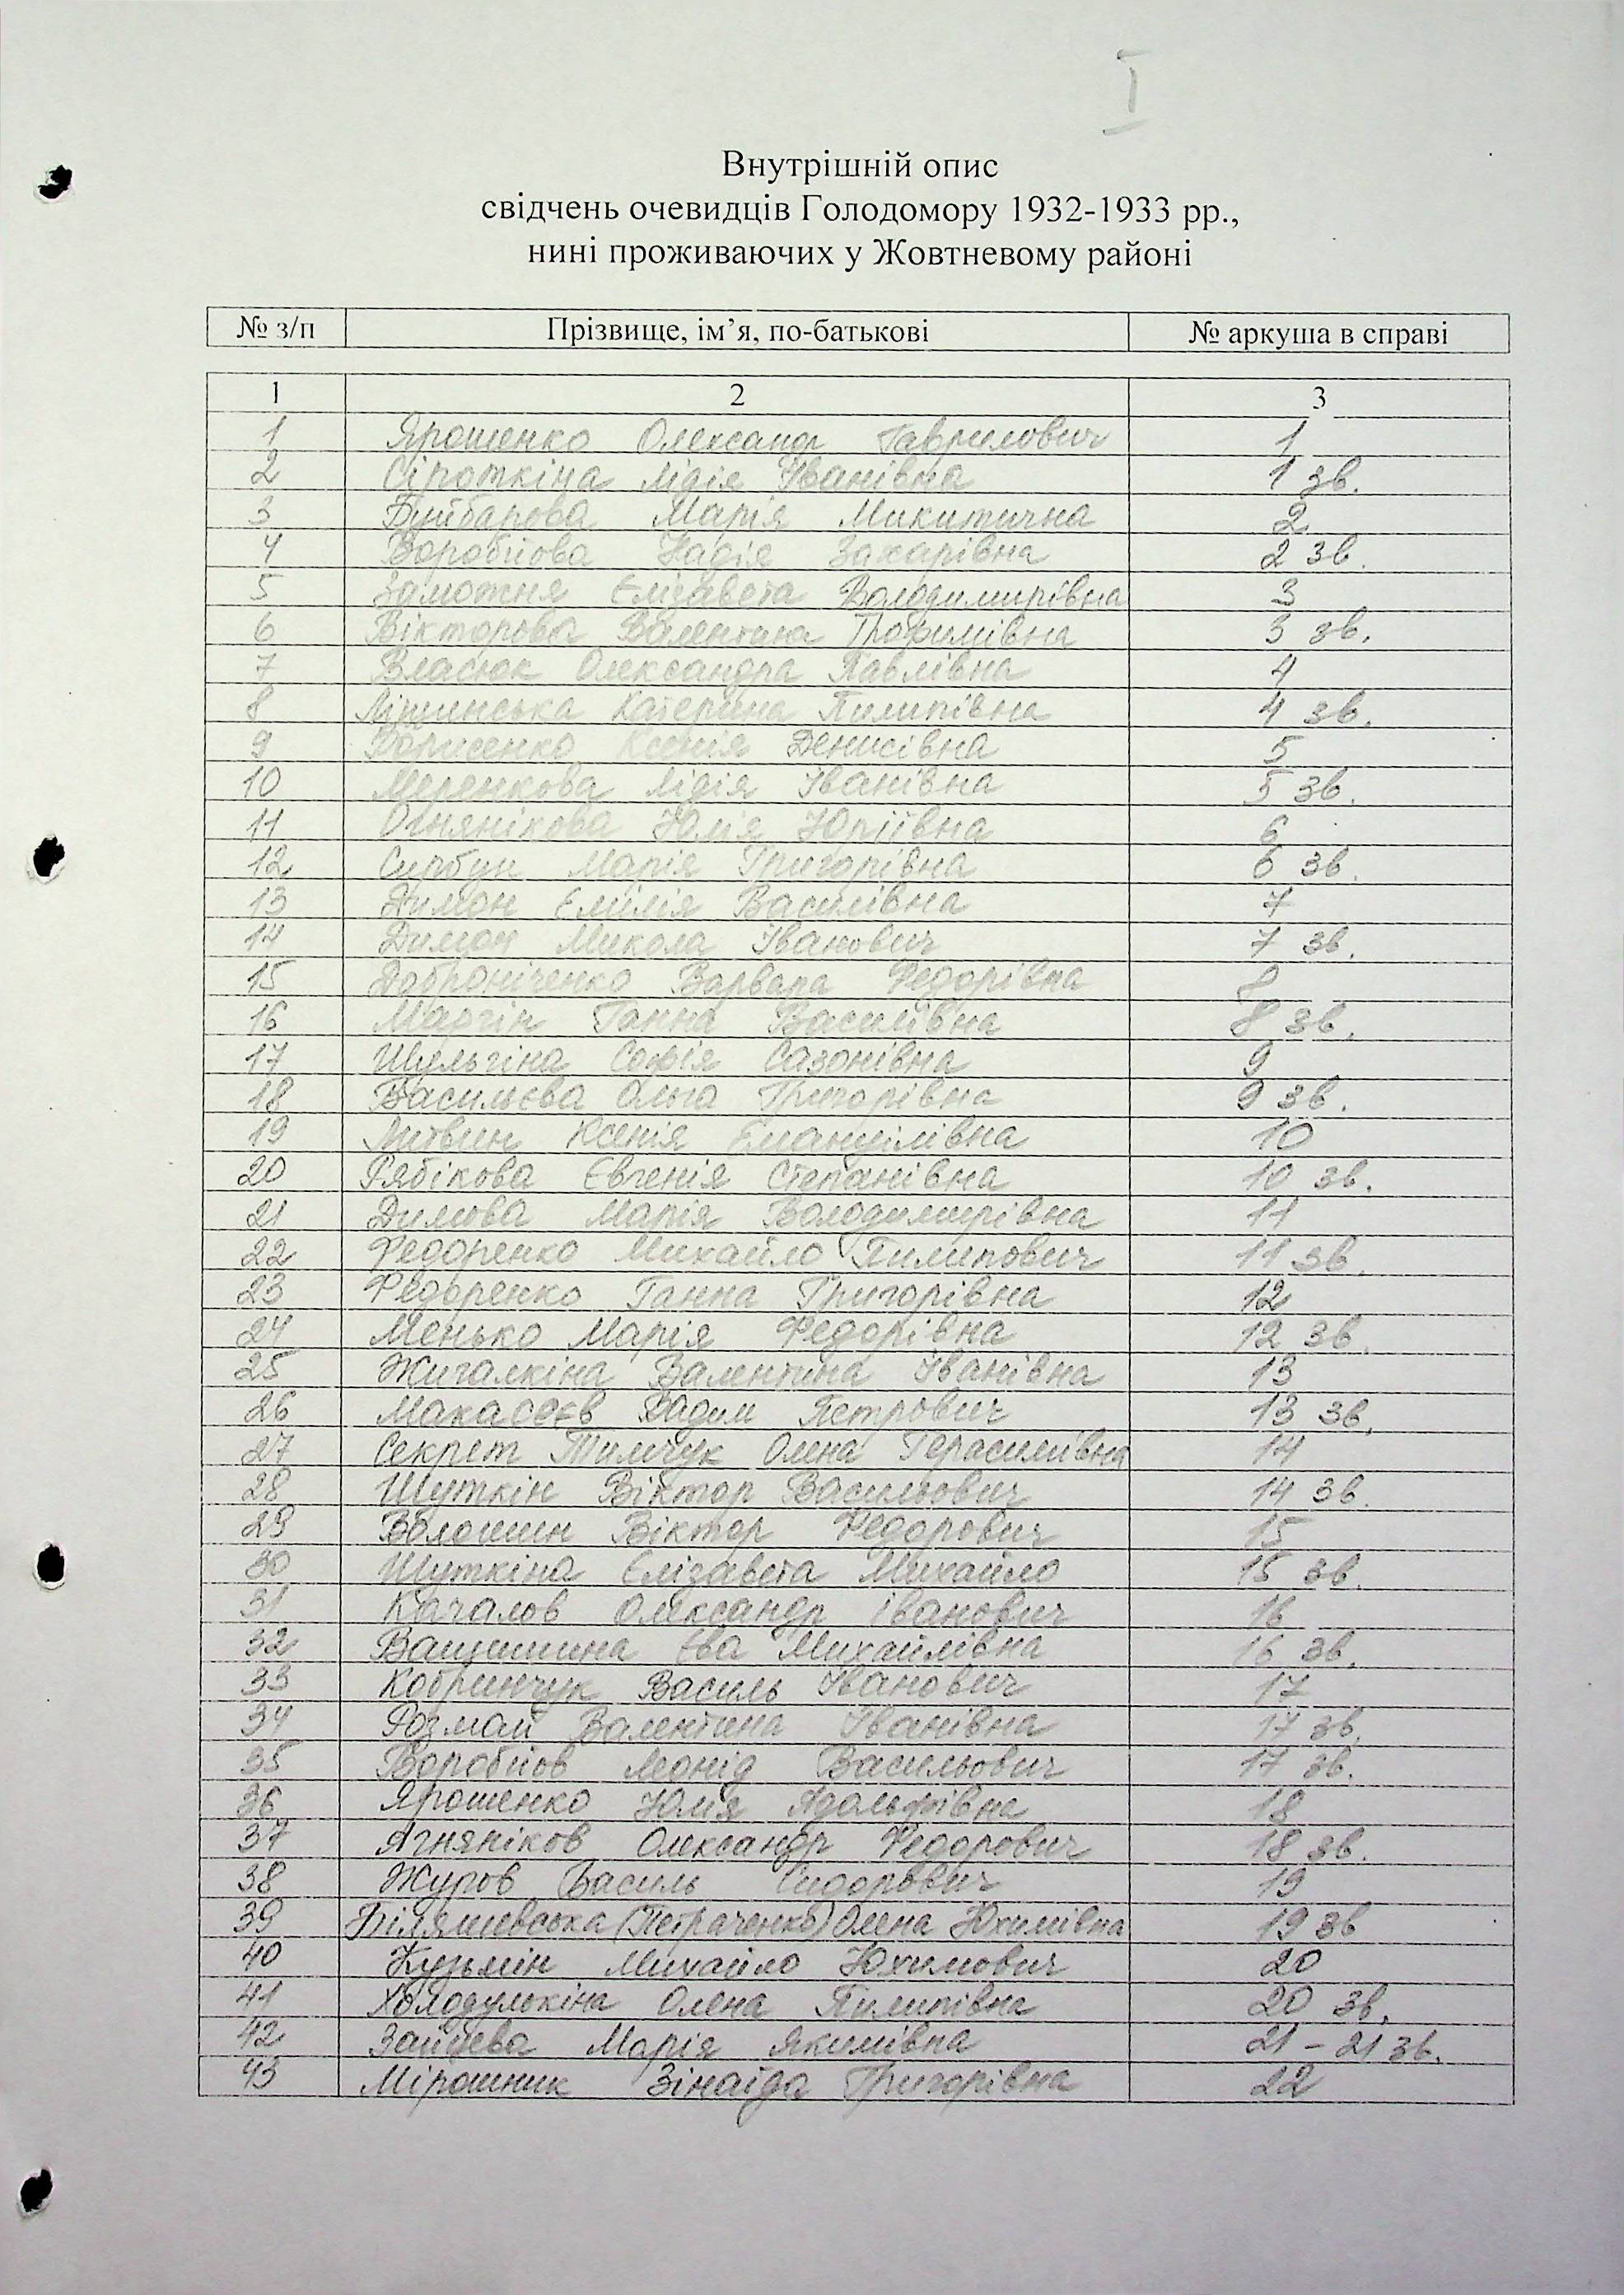 I
Внутрішній опис
свідчень очевидців Голодомору 1932-1933 рр.,
нині проживаючих у Жовтневому районі
№ з/п Прізвище, ім’я, по-батькові № аркуша в справі
1 2 3
1 Ярошенко Олександр Гаврилович 1
2 Сіроткіна Лідія Іванівна 1 зв.
3 Буйбарова Марія Микитична 2
4 Воробйова Надія Захарівна 2 зв.
5 Заможня Єлізавета Володимирівна 3
6 Вікторова Валентина Трофимівна 3 зв.
7 Власюк Олександра Павлівна 4
8 Ліщинська Катерина Пилипівна 4 зв.
9 Борисенко Ксенія Денисівна 5
10 Меренкова Лідія Іванівна 5 зв.
11 Огнянікова Юлія Юріївна 6
12 Сирбул Марія Григорівна 6 зв.
13 Димон Емілія Василівна 7
14 Димон Микола Іванович 7 зв.
15 Варвара Федорівна 8
16 Маргін Ганна Василівна 8 зв.
17 Шульгіна Софія Сазонівна 9
18 Васильєва Ольга Григорівна 9 зв.
19 Литвин Ксенія Емануілівна 10
20 Рябікова Євгенія Степанівна 10 зв.
21 Димова Марія Володимирівна 11
22 Федоренко Михайло Пилипович 11 зв.
23 Федоренко Ганна Григорівна 12
24 Менько Марія Федорівна 12 зв.
25 Жигалкіна Валентина Іванівна 13
26 Макасєєв Вадим Петрович 13 зв.
27 Секрет Тимчук Олена Герасимівна 14
28 Шуткін Віктор Васильович 14 зв.
29 Волошин Віктор Федорович 15
30 Шуткіна Єлізавета Михайло 15 зв.
31 Качалов Олександр Іванович 16
32 Ващишина Єва Михайлівна 16 зв.
33 Кобринчук Василь Іванович 17
34 Розмай Валентина Іванівна 17 зв.
35 Воробйов Леонід Васильович 17 зв.
36 Ярошенко Юлія Адольфівна 18
37 Ягняніков Олександр Федорович 18 зв.
38 Журов Василь Сидорович 19
39 Біляшевська (Петраченко) Олена Юхимівна 19 зв
40 Кузьмін Михайло Юхимович 20
41 Холодулькіна Олена Пилипівна 20 зв.
42 Зайцева Марія Якимівна 21 – 21 зв.
43 Мірошник Зінаїда Григорівна 22